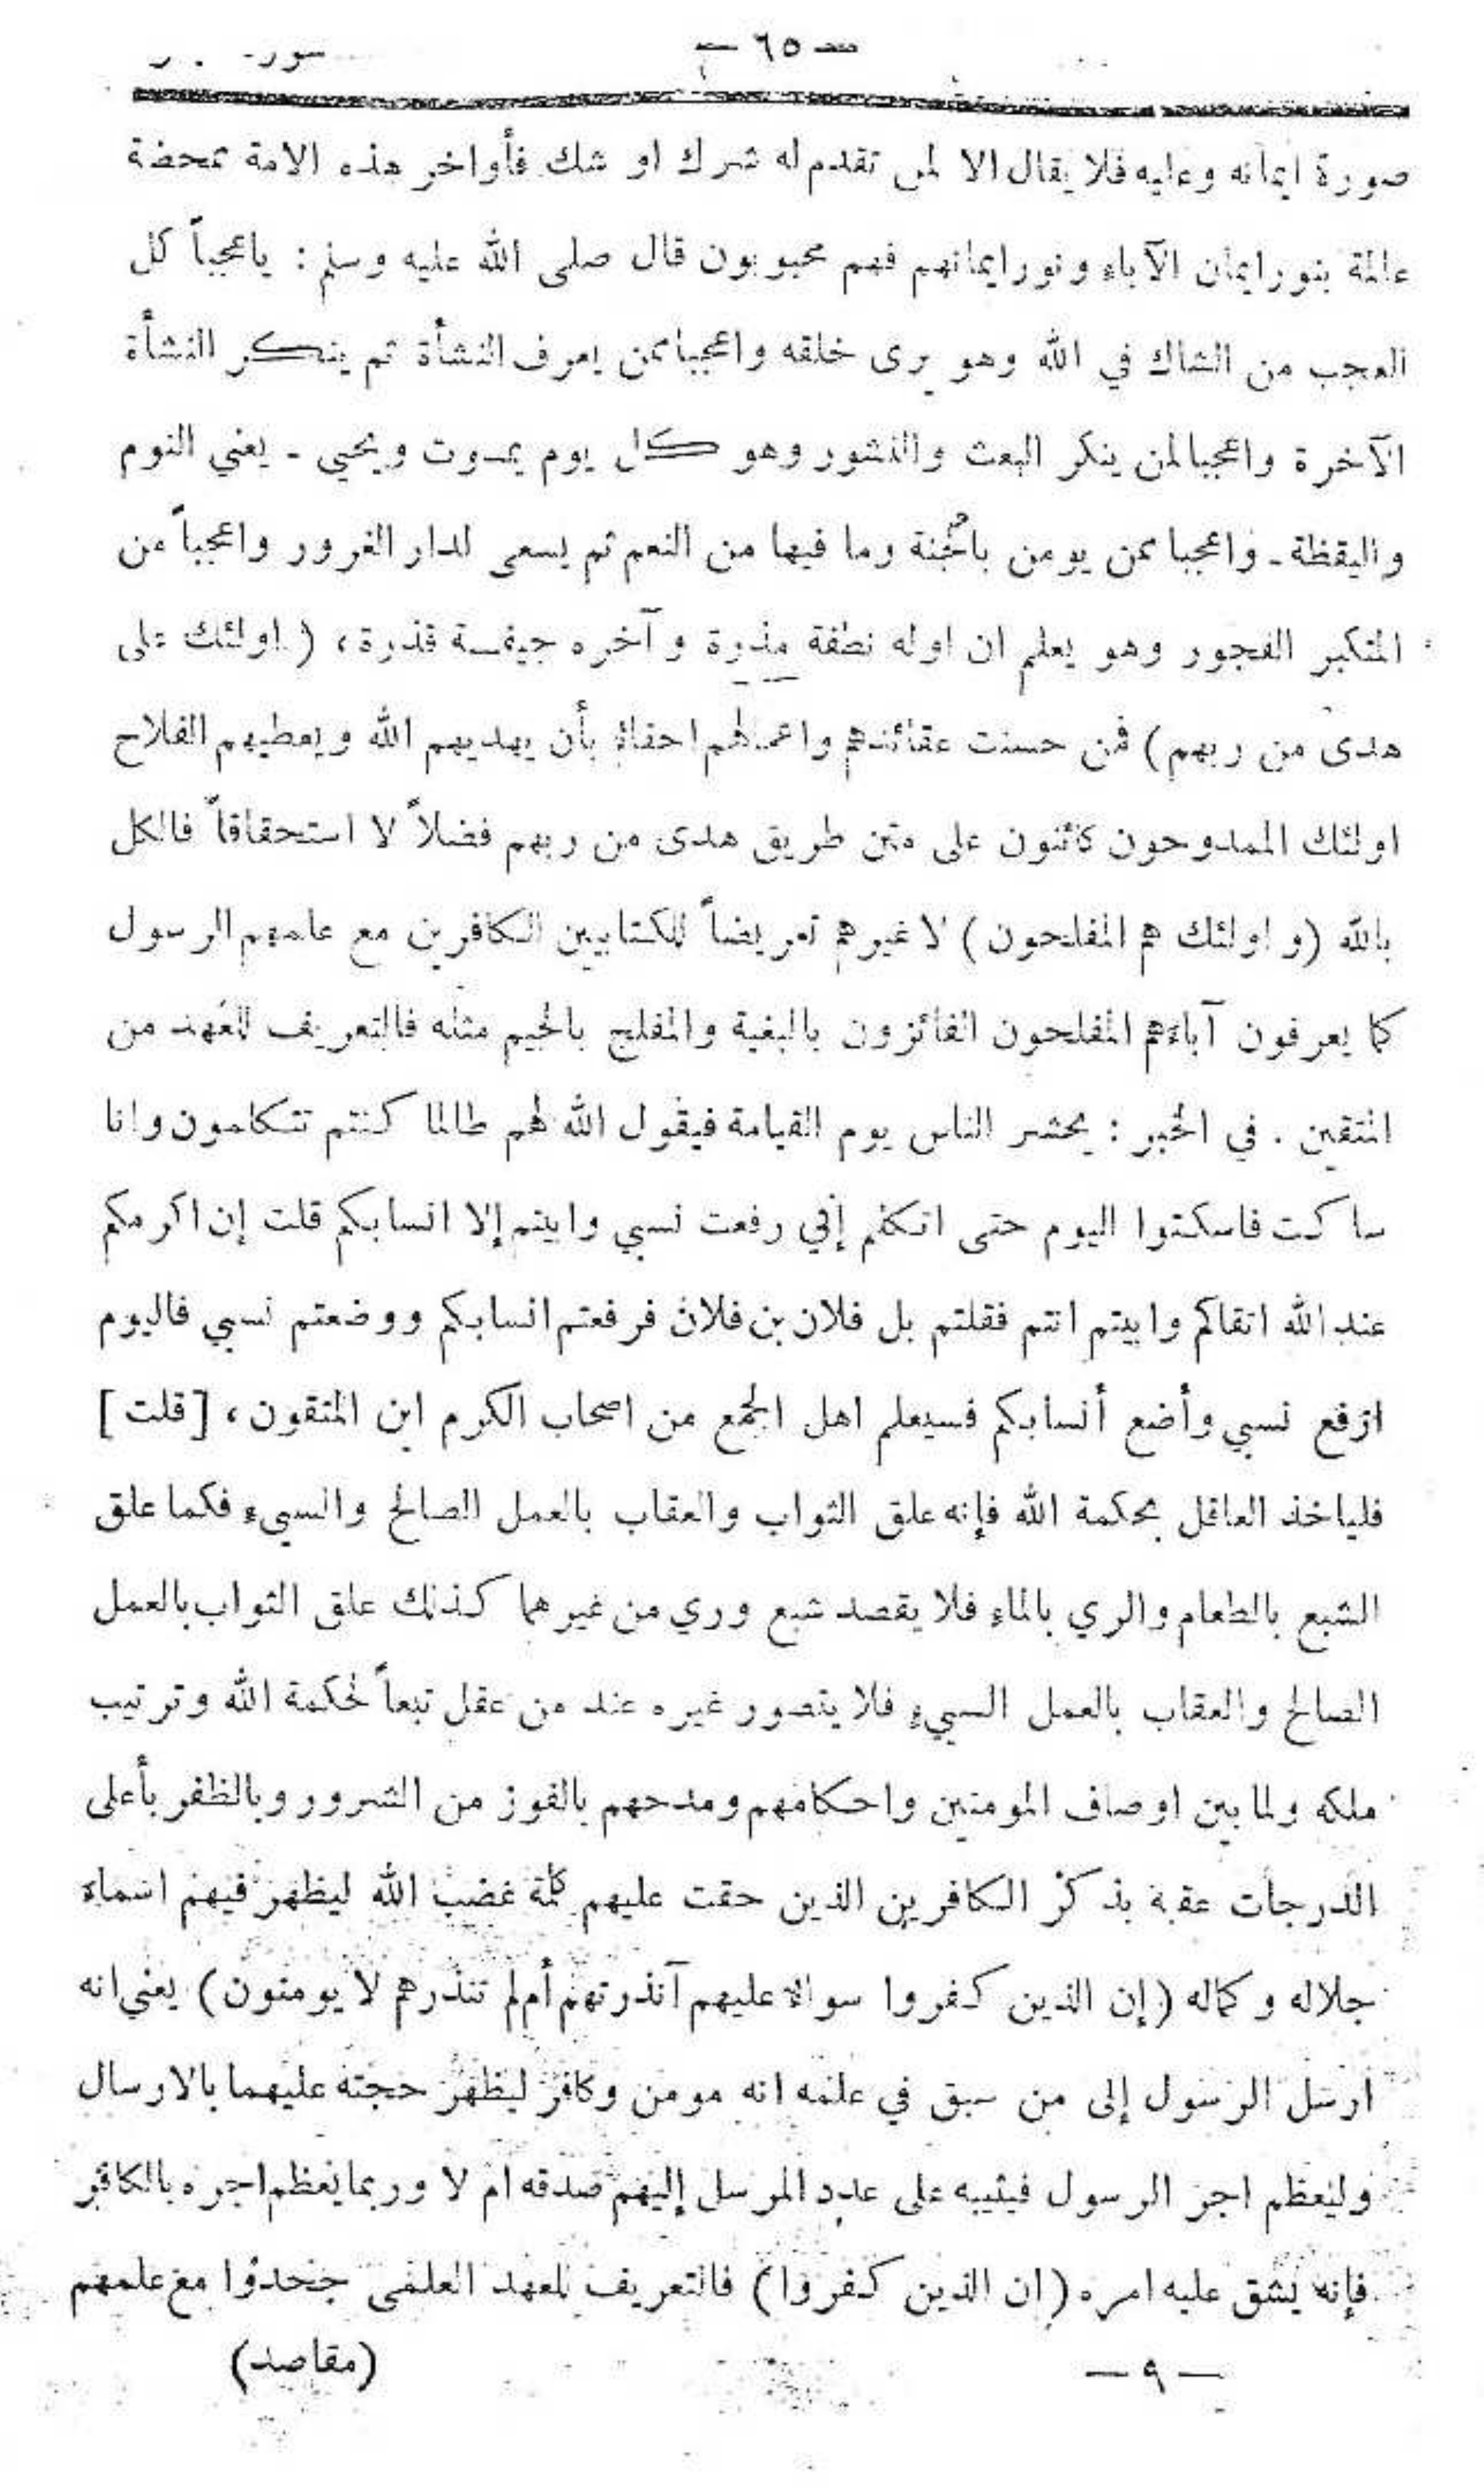 — ٦٥ —
صورة ايمانه وعليه فلا يقال الا لمن تقدم له شرك او شك فأواخر هذه الامة محضة
عالمة بنور ايمان الآباء ونور ايمانهم فهم محبوبون قال صلى الله عليه وسلم : ياعجباً كل
العجب من الشاك في الله وهو يرى خلقه واعجبا ممن يعرف النشأة ثم ينكر النشأة
الآخرة واعجبا لمن ينكر البعث والنشور وهو كل يوم يموت ويحيى ـ يعني النوم
واليقظة ـ واعجبا ممن يومن بالجنة وما فيها من النعم ثم يسعى لدار الغرور واعجباً من
المتكبر الفجور وهو يعلم ان اوله نطفة مذرة وآخره جيفة قذرة ، ( اولئك على
هدى من ربهم ) فمن حسنت عقائدهم واعمالهم احقاء بأن يهديهم الله ويعطيهم الفلاح
اولئك الممدوحون كائنون على متن طريق هدى من ربهم فضلاً لا استحقاقاً فالكل
بالله ( واولئك هم المفلحون ) لا غيرهم تعريضاً للكتابيين الكافرين مع علمهم الرسول
كما يعرفون آباءهم المفلحون الفائزون بالبغية والمفلج بالجيم مثله فالتعريف للعهد من
المتقين . في الخبر : يحشر الناس يوم القيامة فيقول الله لهم طالما كنتم تتكلمون وانا
ساكت فاسكتوا اليوم حتى اتكلم إني رفعت نسبي وابيتم إلا انسابكم قلت إن اكرمكم
عند الله اتقاكم وابيتم انتم فقلتم بل فلان بن فلان فرفعتم انسابكم ووضعتم نسبي فاليوم
ارفع نسبي وأضع أنسابكم فسيعلم اهل الجمع من اصحاب الكرم اين المتقون ، [ قلت ]
فلياخذ العاقل بحكمة الله فإنه علق الثواب والعقاب بالعمل الصالح والسيء فكما علق
الشبع بالطعام والري بالماء فلا يقصد شبع وري من غيرهما كذلك علق الثواب بالعمل
الصالح والعقاب بالعمل السيء فلا يتصور غيره عند من عقل تبعاً لحكمة الله وترتيب
ملكه ولما بين اوصاف المومنين واحكامهم ومدحهم بالفوز من الشرور وبالظفر بأعلى
الدرجات عقبه بذكر الكافرين الذين حقت عليهم كلمة غضب الله ليظهر فيهم اسماء
جلاله وكماله ( إن الذين كفروا سواء عليهم آنذرتهم أم لم تنذرهم لا يومنون ) يعني انه
ارسل الرسول إلى من سبق في علمه انه مومن وكافر ليظهر حجته عليهما بالارسال
وليعظم اجر الرسول فيثيبه على عدد المرسل إليهم صدقه ام لا وربما يعظم اجره بالكافر
فإنه يشق عليه امره ( ان الذين كفروا ) فالتعريف للعهد العلمى جحدوا مع علمهم
— ٩ — (مقاصد)